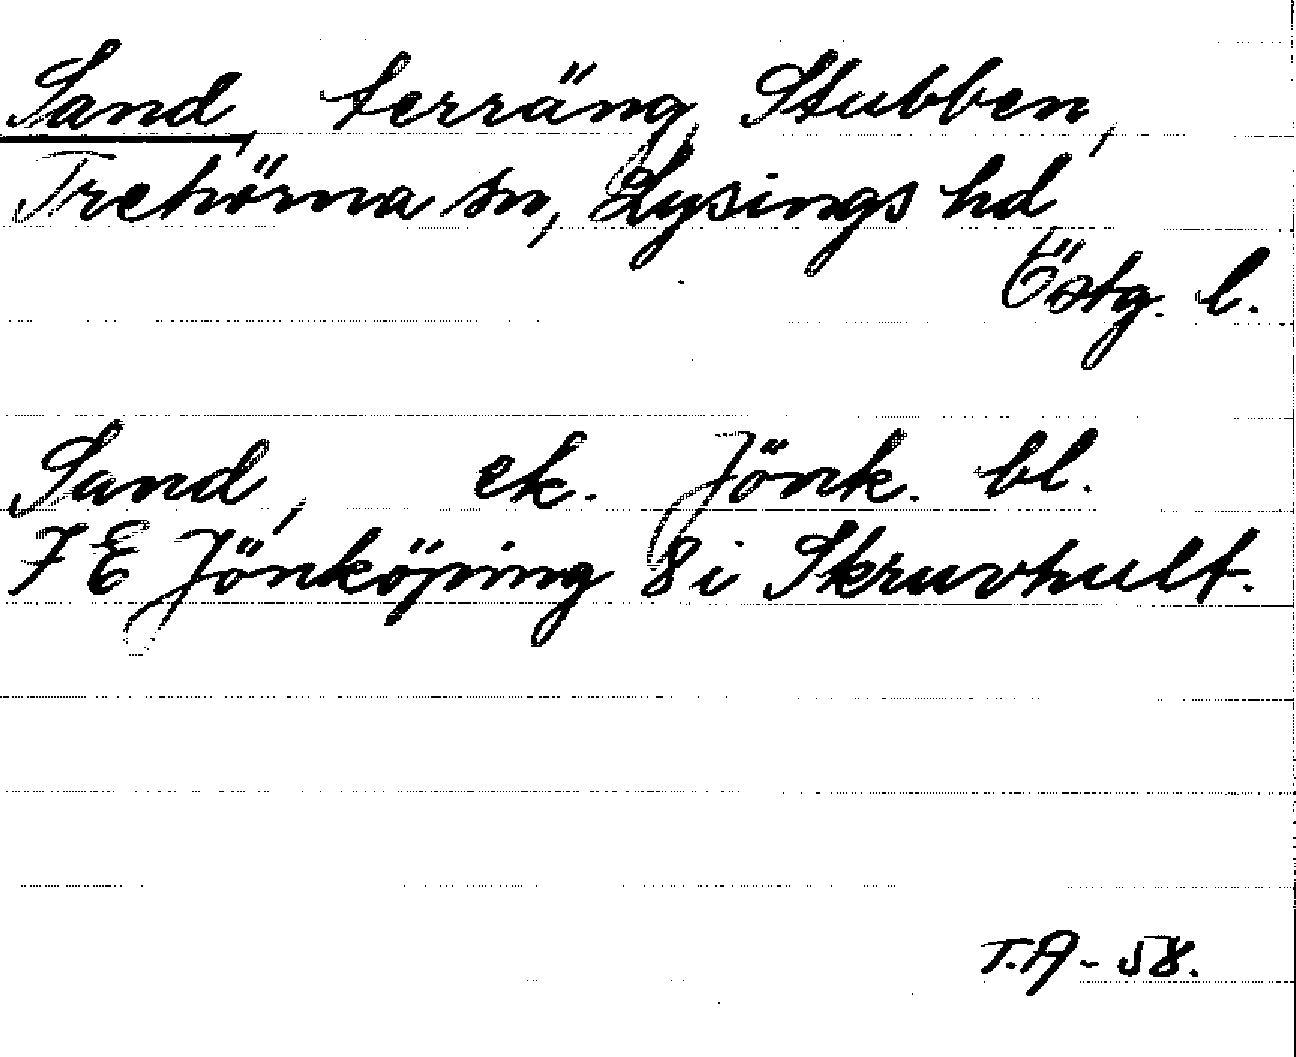 Sand, terräng, Stubben,
Trehörna sn, Lysings hd,
Östg. l.
Sand, ek. Jönk. bl.
7 E Jönköping 8 i Skruvhult.
T.A - 58.